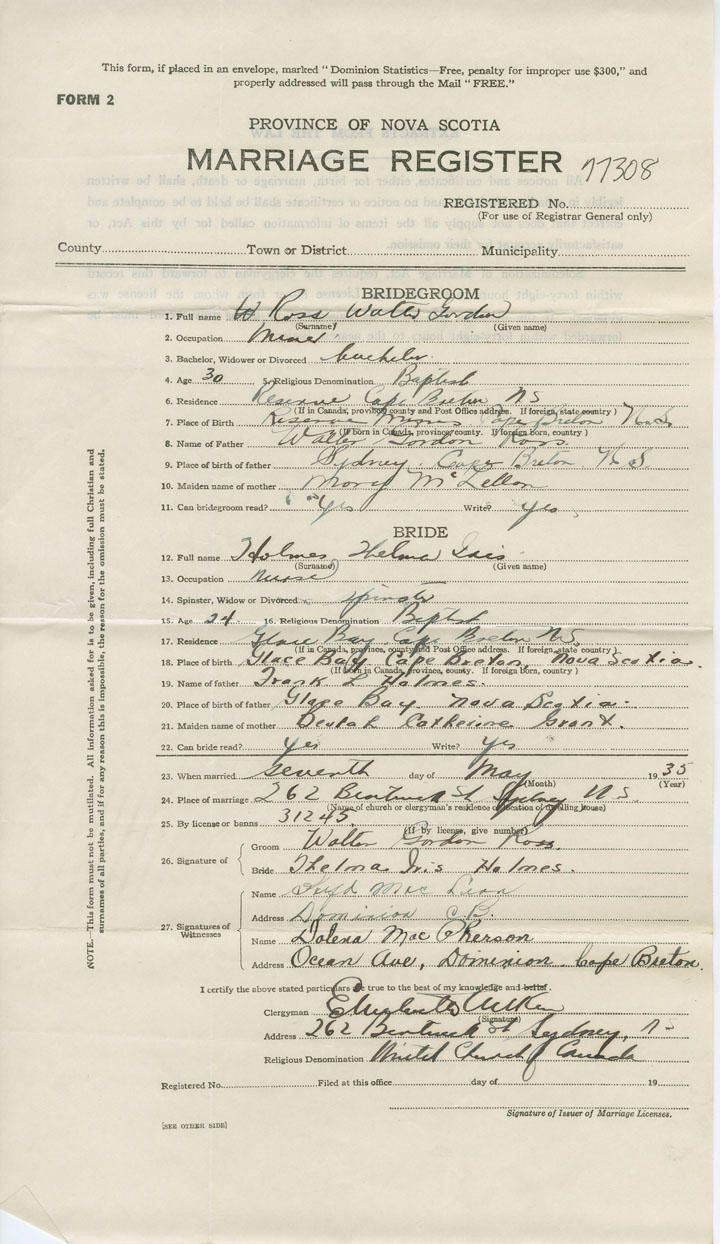 This form, if placed in an envelope, marked "Dominion Statistics—Free, penalty for improper use $300," and
properly addressed will pass through the Mail "FREE."
FORM 2
PROVINCE OF NOVA SCOTIA
MARRIAGE REGISTER 77308
REGISTERED No.
(For use of Registrar General only)
County Town or District Municipality
BRIDEGROOM
1. Full name Ross Walter Gordon
(Surname) (Given name)
2. Occupation Miner
3. Bachelor, Widower or Divorced bachelor
4. Age 30 5. Religious Denomination Baptist
6. Residence Reserve Cape Breton NS
(If in Canada, province, county and Post Office address. If foreign, state country)
7. Place of Birth Reserve Mines Cape Breton N.S.
(If born in Canada, province, county. If foreign born, country)
8. Name of Father Walter Gordon Ross.
9. Place of birth of father Sydney Cape Breton N.S.
10. Maiden name of mother Mary McLellon
11. Can bridegroom read? Yes Write? yes
BRIDE
12. Full name Holmes Thelma Iris
(Surname) (Given name)
13. Occupation nurse
14. Spinster, Widow or Divorced spinster
15. Age 24 16. Religious Denomination Baptist
17. Residence Glace Bay Cape Breton N.S.
(If in Canada, province, county and Post Office address. If foreign, state country)
18. Place of birth Glace Bay, Cape Breton, Nova Scotia.
(If born in Canada, province, county. If foreign born, country)
19. Name of father Frank L Holmes.
20. Place of birth of father Glace Bay Nova Scotia.
21. Maiden name of mother Beulah Catherine Grant.
22. Can bride read? yes Write? yes
23. When married seventh day of May 1935
(Month) (Year)
24. Place of marriage 262 St Sydney N S.
(Name of church or clergyman's residence or location of dwelling house)
25. By license or banns 31245
(If by license, give number)
26. Signature of
Groom Walter Gordon Ross
Bride Thelma Iris Holmes.
27. Signatures of Witnesses
Name Mac Lean
Address Dominion C.B.
Name Dolena MacPherson
Address Ocean Ave, Dominion Cape Breton.
I certify the above stated particulars are true to the best of my knowledge and belief.
Clergyman
(Signature)
Address 262 St Sydney, N S
Religious Denomination United Church of Canada
Registered No. Filed at this office day of 19
Signature of Issuer of Marriage Licenses.
[SEE OTHER SIDE]
NOTE.—This form must not be mutilated. All information asked for is to be given, including full Christian and
surnames of all parties, and if for any reason this is impossible, the reason for the omission must be stated.